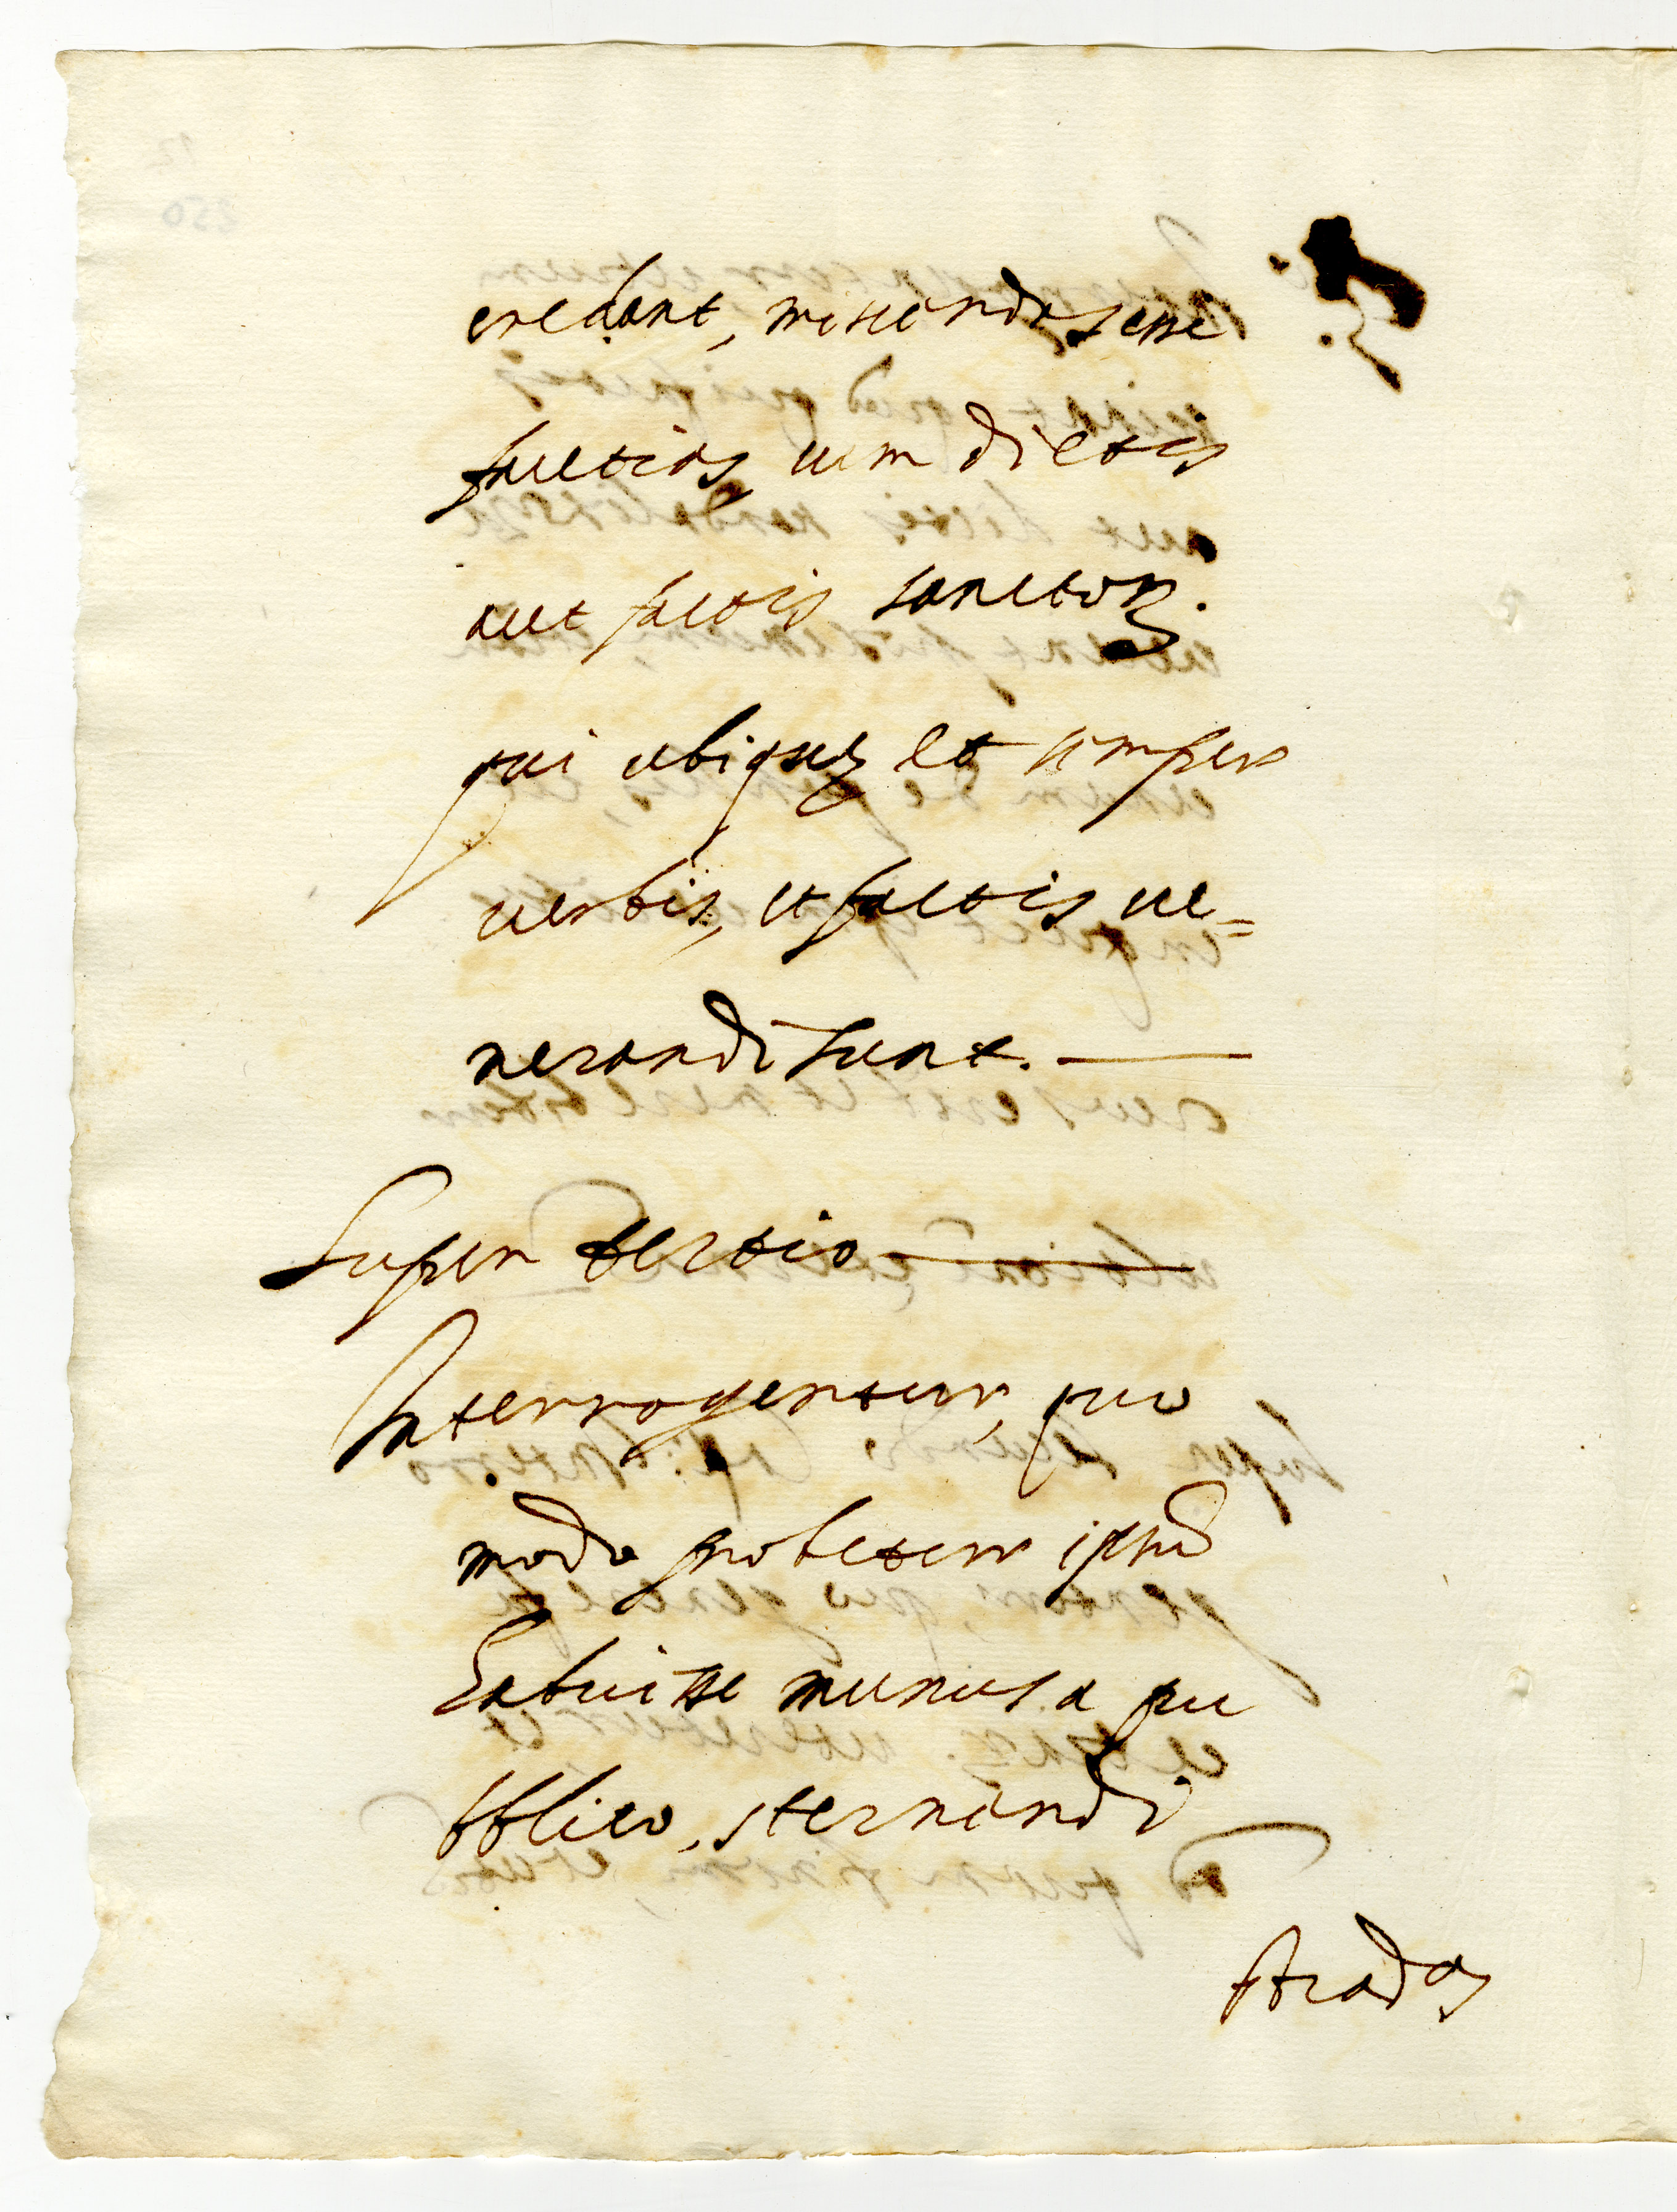 credant, miscendas esse
facetias cum dictis
aut factis sanctorꝝ.
qui ubiqueꝫ et semper
verbis, et factis ve=
nerandi sunt.
Super tertio
Interrogentur, quo
modo probetur ipsū
habuisse munus a pu
bblico, sternendi
stradas